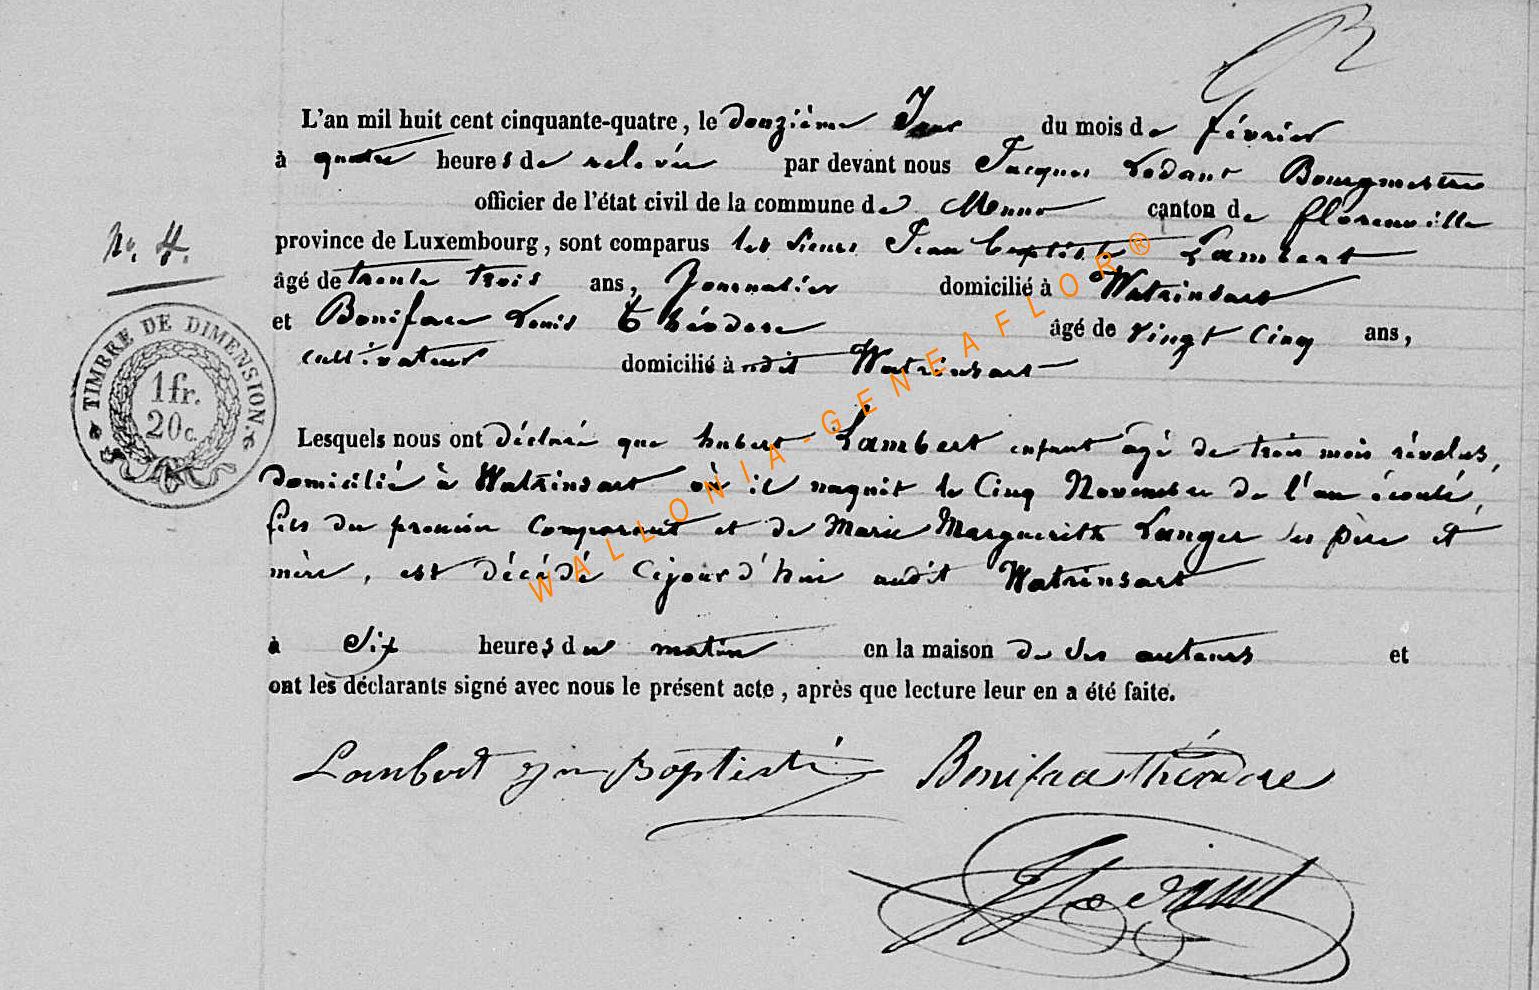 L'an mil huit cent cinquante-quatre, le douzième Jour du mois de février
à quatre heures de relevée par devant nous Jacques Lodant Bourgmestre
officier de l'état civil de la commune de Muno canton de florenville
No. 4.
province de Luxembourg, sont comparus les Sieurs Jean baptiste Lambert
âgé de trente trois ans, Journalier domicilié à Watrinsart
et Boniface Louis Théodore âgé de vingt cinq ans,
cultivateur domicilié à udit Watrinsart
TIMBRE DE DIMENSION.
1 fr.
20 c.
Lesquels nous ont déclaré que hubert Lambert enfant âgé de trois mois révolus,
domicilié à Watrinsart où il naquit le Cinq Novembre de l'an écoulé,
fils du premier Comparant et de Marie Marguerite Langer ses père et
mère, est décédé Cejourd'hui audit Watrinsart
à Six heures du matin en la maison de ses auteurs et
ont les déclarants signé avec nous le présent acte, après que lecture leur en a été faite.
Lambert Jean Baptiste Boniface Théodore
Lodant
WALLONIA-GENEAFLOR®